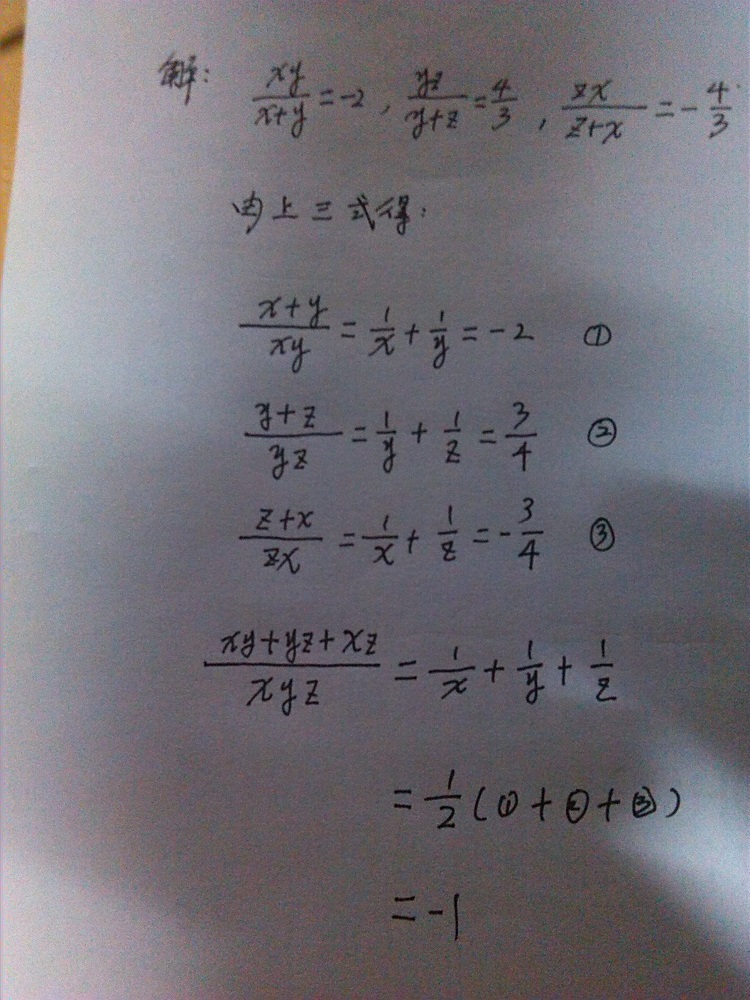 解: xy/(x+y) = -2, yz/(y+z) = 4/3, zx/(z+x) = -4/3
由上三式得:
(x+y)/xy = 1/x + 1/y = -2 ①
(y+z)/yz = 1/y + 1/z = 3/4 ②
(z+x)/zx = 1/x + 1/z = -3/4 ③
(xy+yz+xz)/xyz = 1/x + 1/y + 1/z
= 1/2 (① + ② + ③)
= -1